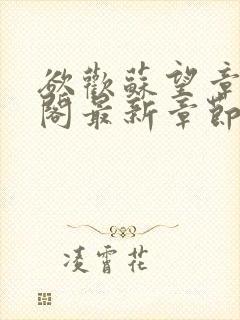 欲歡蘇望章
閣最新章節
凌霄花